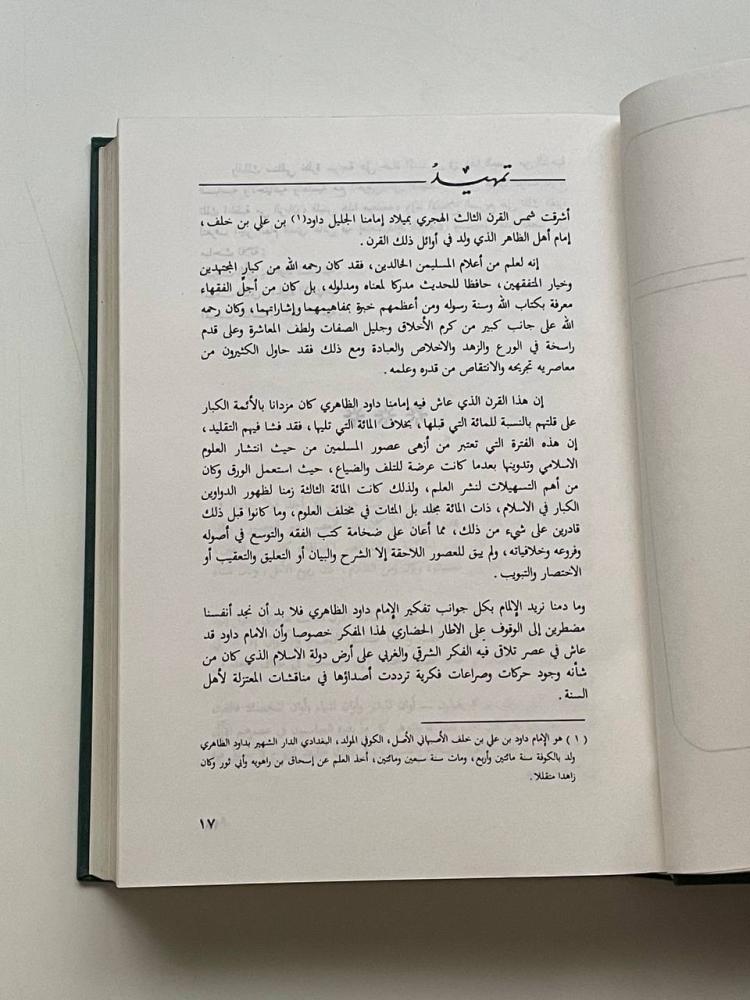 تمهيد
أشرقت شمس القرن الثالث الهجري بميلاد إمامنا الجليل داود(١) بن علي بن خلف ،
إمام أهل الظاهر الذي ولد في أوائل ذلك القرن .
إنه لعلم من أعلام المسليمن الخالدين، فقد كان رحمه الله من كبار المجتهدين
وخيار المتفقهين، حافظا للحديث مدركا لمعناه ومدلوله، بل كان من أجلّ الفقهاء
معرفة بكتاب الله وسنة رسوله ومن أعظمهم خبرة بمفاهيمهما وإشاراتهما، وكان رحمه
الله على جانب كبير من كرم الأخلاق وجليل الصفات ولطف المعاشرة وعلى قدم
راسخة في الورع والزهد والاخلاص والعبادة ومع ذلك فقد حاول الكثيرون من
معاصريه تجريحه والانتقاص من قدره وعلمه .
إن هذا القرن الذي عاش فيه إمامنا داود الظاهري كان مزدانا بالأئمة الكبار
على قلتهم بالنسبة للمائة التي قبلها، بخلاف المائة التي تليها، فقد فشا فيهم التقليد،
إن هذه الفترة التي تعتبر من أزهى عصور المسلمين من حيث انتشار العلوم
الاسلامي وتدوينها بعدما كانت عرضة للتلف والضياع، حيث استعمل الورق وكان
من أهم التسهيلات لنشر العلم، ولذلك كانت المائة الثالثة زمنا لظهور الدواوين
الكبار في الاسلام، ذات المائة مجلد بل المئات في مختلف العلوم، وما كانوا قبل ذلك
قادرين على شيء من ذلك، مما أعان على ضخامة كتب الفقه والتوسع في أصوله
وفروعه وخلافياته، ولم يبق للعصور اللاحقة إلا الشرح والبيان أو التعليق والتعقيب أو
الاختصار والتبويب .
وما دمنا نريد الإلمام بكل جوانب تفكير الإمام داود الظاهري فلا بد أن نجد أنفسنا
مضطرين إلى الوقوف على الاطار الحضاري لهذا المفكر خصوصا وأن الامام داود قد
عاش في عصر تلاق فيه الفكر الشرقي والغربي على أرض دولة الاسلام الذي كان من
شأنه وجود حركات وصراعات فكرية ترددت أصداؤها في مناقشات المعتزلة لأهل
السنة .
( ١ ) هو الإمام داود بن علي بن خلف الأصبهاني الأصل، الكوفي المولد، البغدادي الدار الشهير بداود الظاهري
ولد بالكوفة سنة مائتين وأربع، ومات سنة سبعين ومائتين، أخذ العلم عن إسحاق بن راهويه وأبي ثور وكان
زاهدا متقللا.
١٧